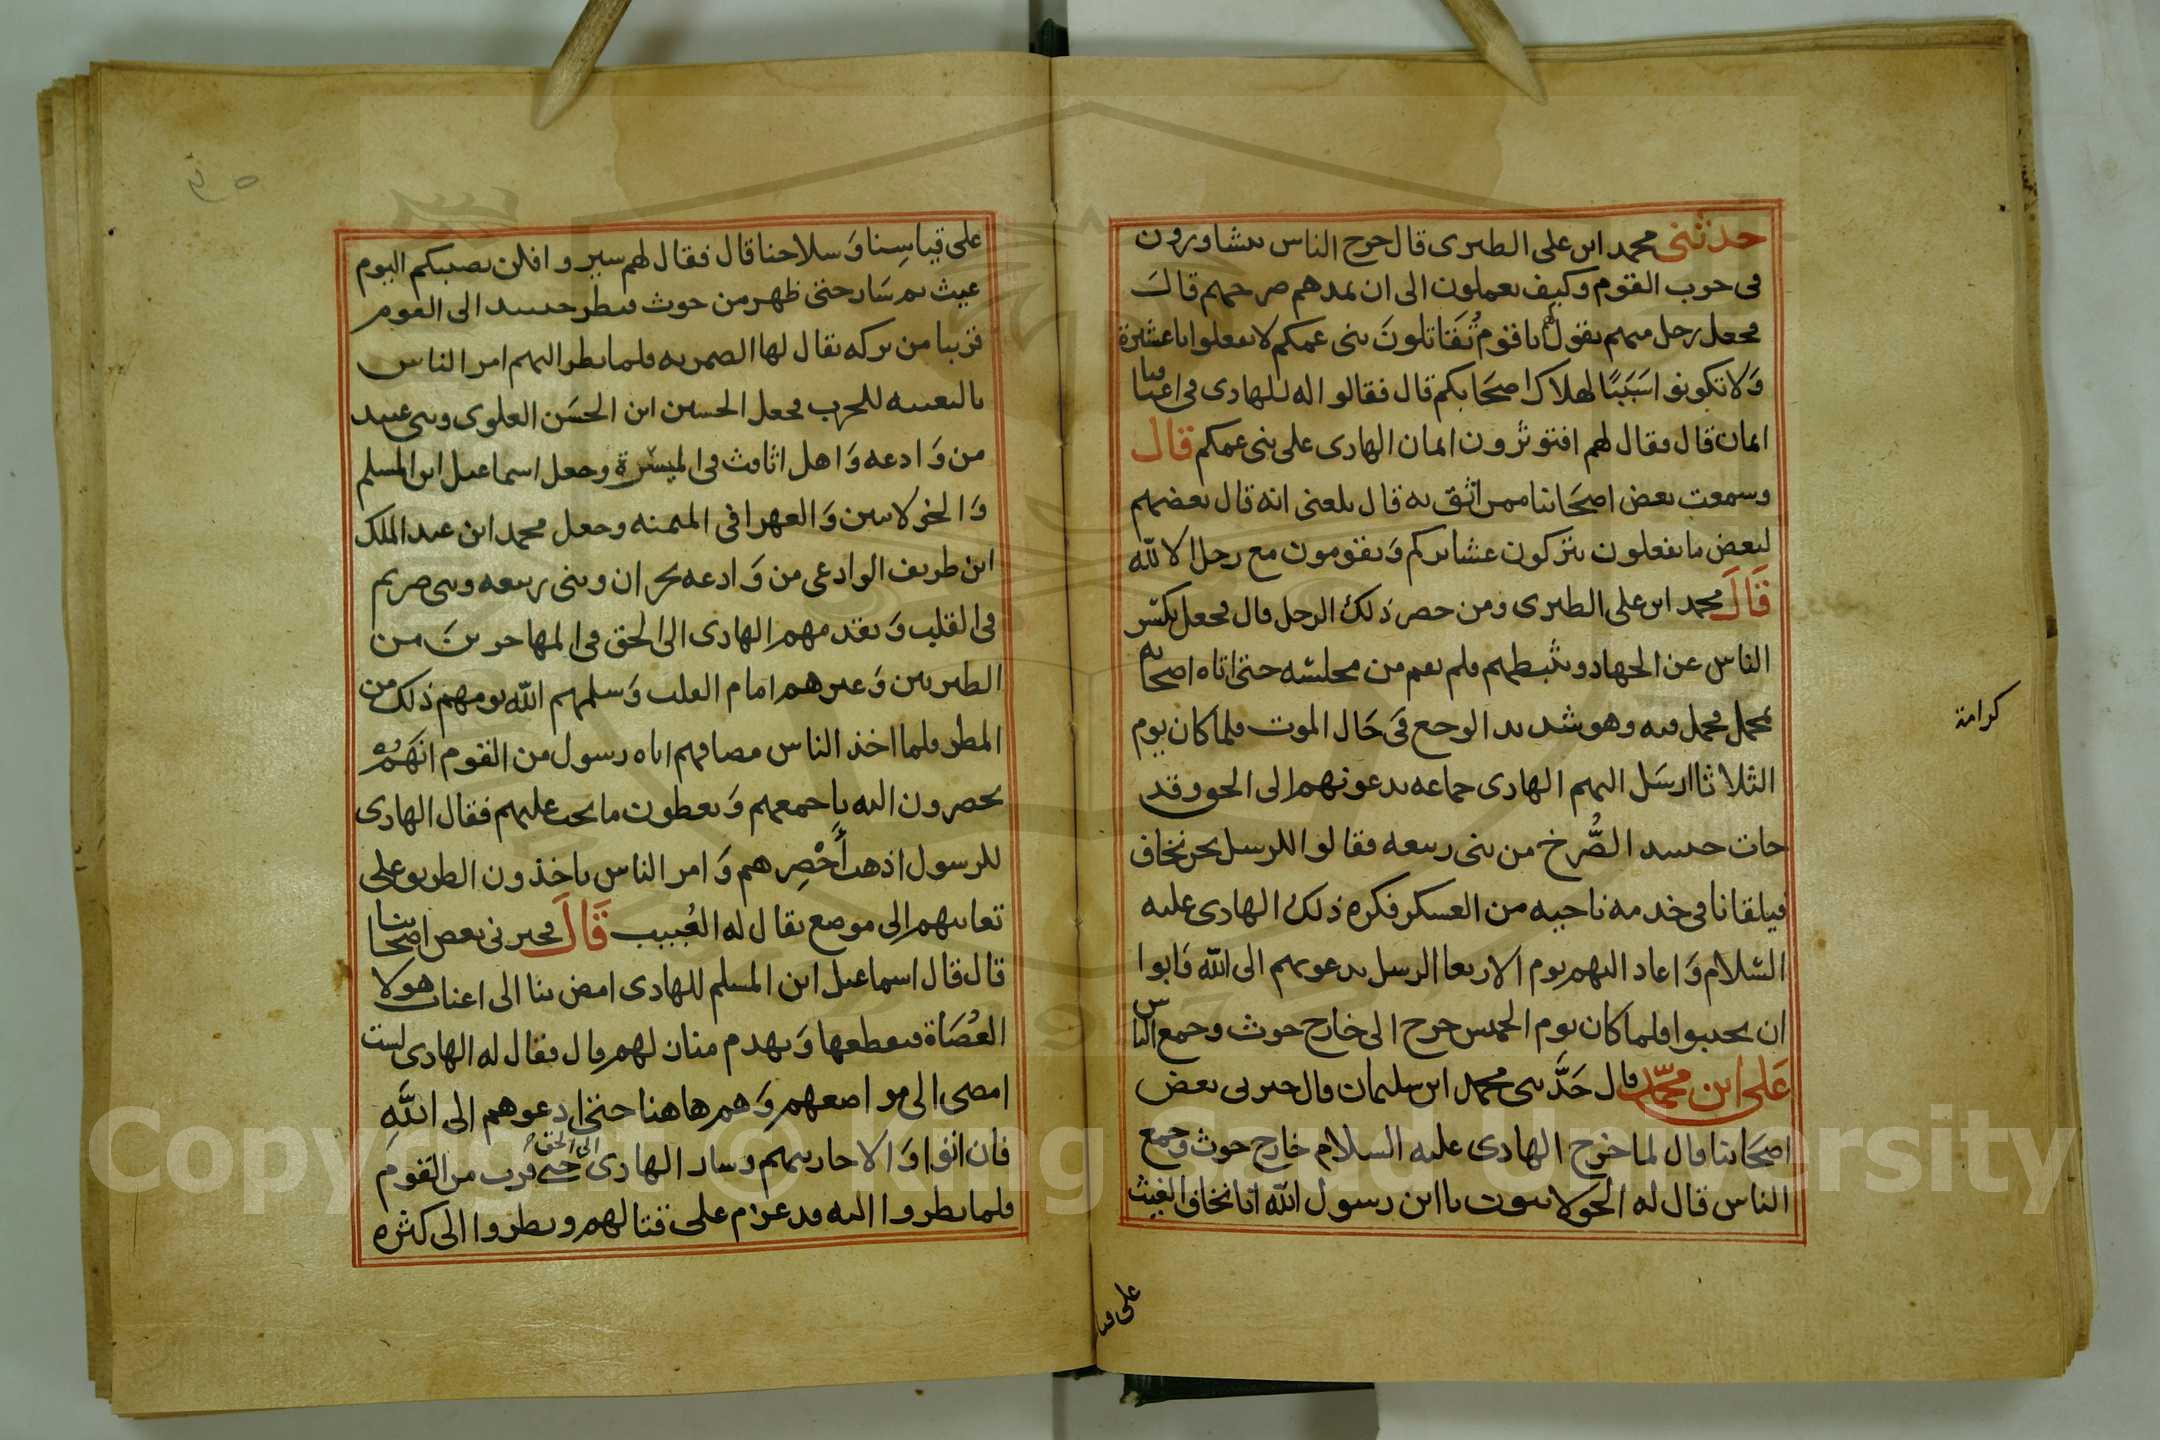 حدثنى محمد ابن على الطبرى قال خرج الناس يتشاورون
فى حرب القوم وكيف يعملون الى ان يمدهم صرحهم قال
فجعل رجل منهم يقول يا قوم تقاتلون بنى عمكم لا تفعلوا يا عشيرة
ولا تكونوا سببا لهلاك اصحابكم قال فقالوا له للهادى فى اعناقنا
ايمان قال فقال لهم افتوثرون ايمان الهادى على بنى عمكم قال
وسمعت بعض اصحابنا ممن اثق به قال بلغنى انه قال بعضهم
لبعض ما تفعلون تتركون عشايركم وتقومون مع رحل الا لله
قال محمد ابن على الطبرى ومن حضر ذلك الرجل قال فجعل يكسر
الناس عن الجهاد ويثبطهم فلم يقم من مجلسه حتى اتاه اصحابه
بمحمل فحمل فيه وهو شديد الوجع فى حال الموت فلما كان يوم
الثلاثا ارسل اليهم الهادى جماعه يدعونهم الى الحق وقد
جات حينئد الصرخ من بنى ربيعه فقالوا للرسل نحن نخاف
فيلقانا فى خدمه ناحيه من العسكر فكره ذلك الهادى عليه
السلام واعاد اليهم يوم الاربعا الرسل يدعونهم الى الله فابوا
ان يجيبوا فلما كان يوم الخميس خرج الى خارج حوث وجمع الناس
على ابن محمد قال حدثنى محمد ابن سليمان قال خبرنى بعض
اصحابنا قال لما خرج الهادى عليه السلام خارج حوث وجمع
الناس قال له الخولانيون يا ابن رسول الله انا نخاف الغيث
كرامة
على قيا
على قياسنا وسلاحنا قال فقال لهم سيروا فلن يصيبكم اليوم
غيث ثم سار حتى ظهر من حوث فنظر حينئد الى القوم
قريبا من بركه يقال لها الصمريه فلما نظر اليهم امر الناس
بالتعبيه للحرب فجعل الحسين ابن الحسن العلوى وبنى عبيد
من وادعه واهل اثافث فى الميسرة وجعل اسماعيل ابن المسلم
والخولانيين والعهرا فى الميمنه وجعل محمد ابن عبد الملك
ابن طريف الوادعى من وادعه نجران وبنى ربيعه وبنى صريم
فى القلب وتقدمهم الهادى الى الحق فى المهاجرين من
الطبريين وغيرهم امام القلب وسلمهم الله يومهم ذلك من
المطر فلما اخذ الناس مصافهم اتاه رسول من القوم انهم
يحضرون اليه باجمعهم ويعطون ما يجب عليهم فقال الهادى
للرسول اذهب احضرهم وامر الناس ياخذون الطريق على
تعابيهم الى موضع يقال له العبيب قال فخبرنى بعض اصحابنا
قال قال اسماعيل ابن المسلم للهادى امض بنا الى اعناب هولا
العصاة فنقطعها ونهدم منازلهم قال فقال له الهادى لست
امضى الى مواضعهم وهم هاهنا حتى ادعوهم الى الله
فان اتقوا والا حاربتهم وسار الهادى الى الحق حتى قرب من القوم
فلما نظروا اليه قد عزم على قتالهم ونظروا الى كثره
Copyright © King Saud University